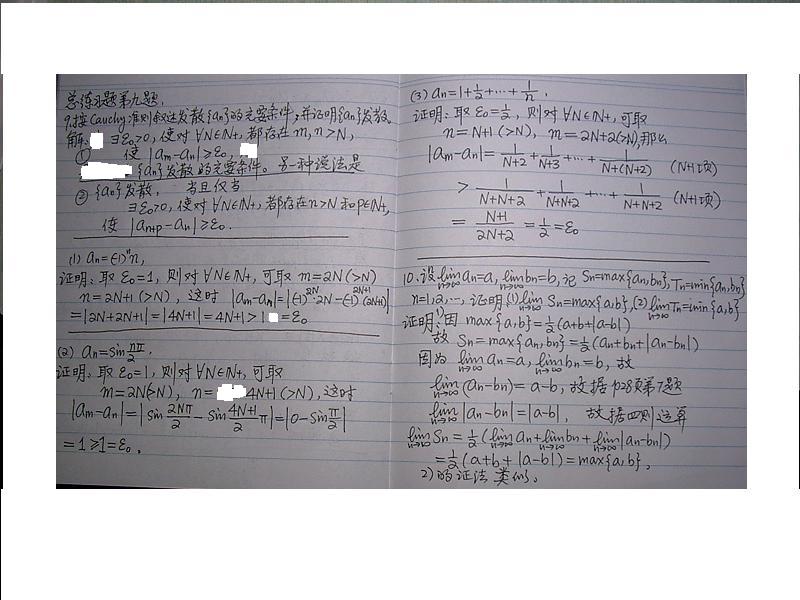 总练习题第九题.
9.按Cauchy准则叙述发散{an}的充要条件,并证明{an}发散.
解: ∃ε₀>0, 使对∀N∈N₊, 都存在 m,n>N,
① 使 |am-an|≥ε₀,
{an}发散的充要条件。另一种说法是
② {an}发散, 当且仅当
∃ε₀>0, 使对∀N∈N₊, 都存在n>N和p∈N₊,
使 |an+p-an|≥ε₀.
(1) an=(-1)ⁿn,
证明: 取ε₀=1, 则对∀N∈N₊, 可取 m=2N(>N)
n=2N+1(>N), 这时 |am-an|=|(-1)^2N·2N-(-1)^2N+1(2N+1)|
=|2N+2N+1|=|4N+1|=4N+1>1=ε₀
(2) an=sin nπ/2.
证明: 取ε₀=1, 则对∀N∈N₊, 可取
m=2N(>N), n=4N+1(>N), 这时
|am-an|=|sin 2Nπ/2 - sin (4N+1)/2 π|=|0-sin π/2|
=1≥1=ε₀.
(3) an=1+1/2+…+1/n.
证明: 取ε₀=1/2, 则对∀N∈N₊, 可取
n=N+1(>N), m=2N+2(>N),那么
|am-an|=1/(N+2)+1/(N+3)+…+1/(N+(N+2)) (N+1项)
>1/(N+N+2)+1/(N+N+2)+…+1/(N+N+2) (N+1项)
=(N+1)/(2N+2)=1/2=ε₀
10.设lim n→∞ an=a, lim n→∞ bn=b, 记 Sn=max{an,bn}, Tn=min{an,bn}
n=1,2,…, 证明(1)lim n→∞ Sn=max{a,b},(2)lim n→∞ Tn=min{a,b}
证明:1)因 max{a,b}=1/2(a+b+|a-b|)
故 Sn=max{an,bn}=1/2(an+bn+|an-bn|)
因为 lim n→∞ an=a, lim n→∞ bn=b, 故
lim n→∞ (an-bn)=a-b, 故据P28页第7题
lim n→∞ |an-bn|=|a-b|, 故据四则运算
lim n→∞ Sn=1/2(lim n→∞ an+lim n→∞ bn+lim n→∞ |an-bn|)
=1/2(a+b+|a-b|)=max{a,b},
2)的证法类似。